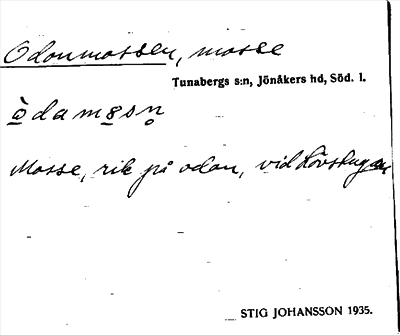 Odonmossen, mosse
Tunabergs s:n, Jönåkers hd, Söd. l.
ò̲dam8̲sn̥
Mosse, rik på odon, vid Lövstugan
STIG JOHANSSON 1935.